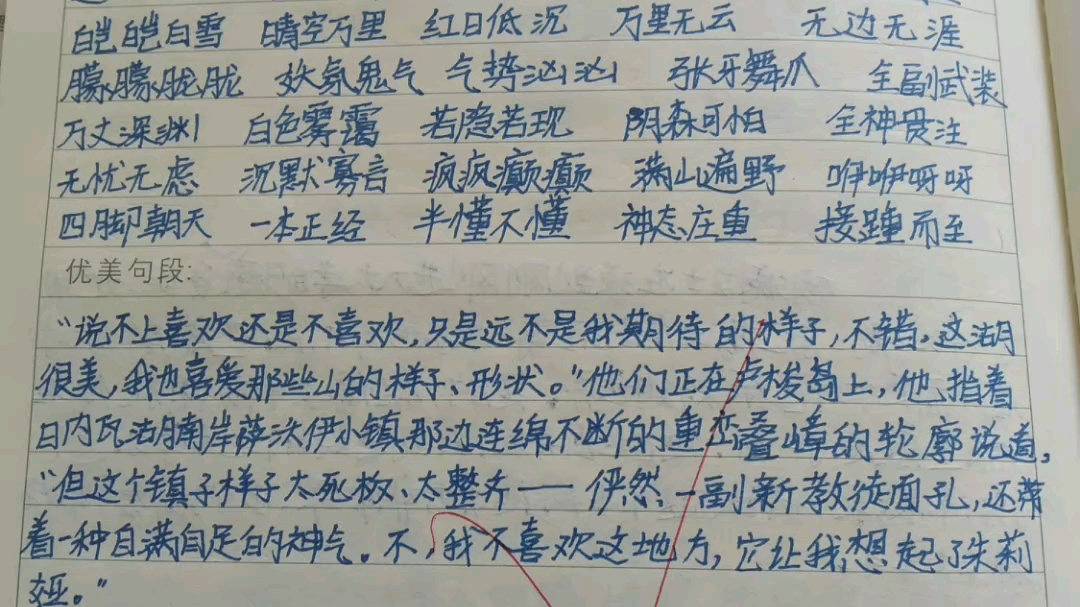 皑皑白雪 晴空万里 红日低沉 万里无云 无边无涯
朦朦胧胧 妖氛鬼气 气势汹汹 张牙舞爪 全副武装
万丈深渊 白色雾霭 若隐若现 阴森可怕 全神贯注
无忧无虑 沉默寡言 疯疯癫癫 满山遍野 咿咿呀呀
四脚朝天 一本正经 半懂不懂 神态庄重 接踵而至
优美句段:
“说不上喜欢还是不喜欢,只是远不是我期待的样子,不错。这湖
很美,我也喜爱那些山的样子、形状。”他们正在卢梭岛上,他指着
日内瓦湖南岸萨沃伊小镇那边连绵不断的重峦叠嶂的轮廓说道,
“但这个镇子样子太死板、太整齐——俨然一副新教徒面孔,还带
着一种自满自足的神气。不,我不喜欢这地方,它让我想起了朱莉
娅。”